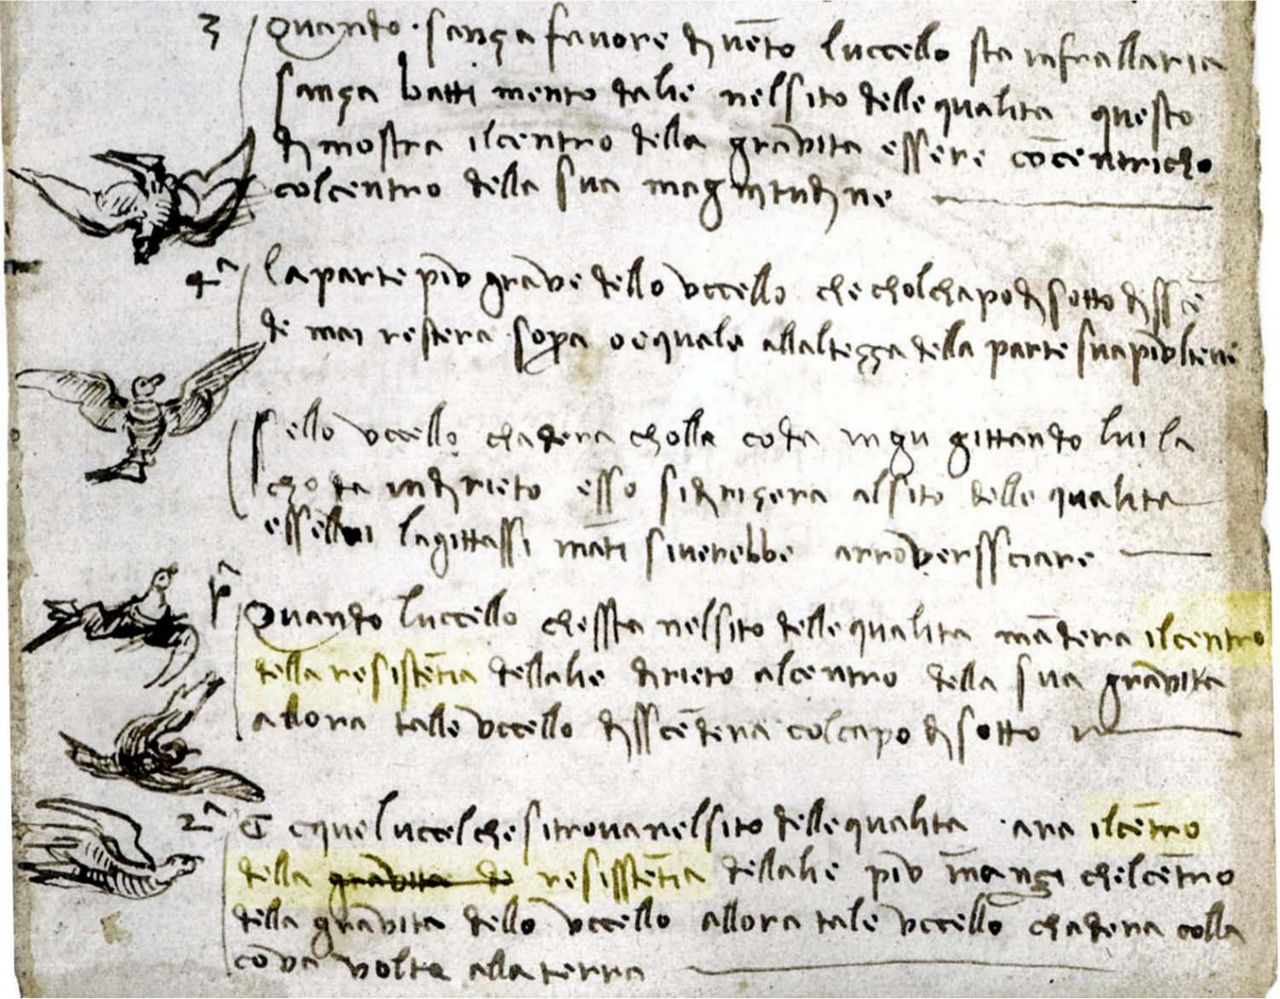 3 Quando sanza favore di vēto luccello sta infrallaria
sanza battimento dalie nel sito delle qualita questo
dimostra il centro della gravita essere cōcentricho
col centro della sua magnitudine
4ª la parte piv grave dello vccello che chol chapo di sotto dissciē
de mai restera sopra o equale allaltezza della parte sua piv lieve
sello vccello chadera cholla coda in giu gittando lui la
choda indirieto esso si dirizera al sito delle qualita
essellui la gittassi ināti si verebbe arroverssciare
pª Quando luccello cheffta nel sito delle qualita mādera il centro
della resistētia dellalie dirieto al centro della sua gravita
allora talle vccello disscēdera col capo di sotto
2ª E cquel uccel che si trova nel sito delle qualita ara il cētro
della gravita de resisstētia dellalie piv inanzi chel cētro
della gravita dello vccello allora tale vccello chadera colla
coda volta alla terra